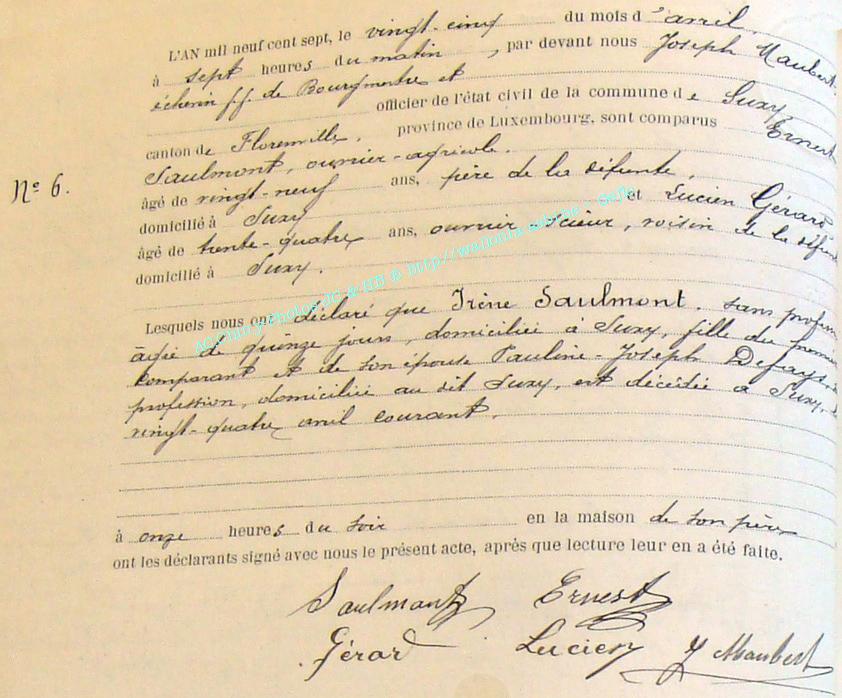 L'AN mil neuf cent sept, le vingt-cinq du mois d'avril,
à sept heures du matin, par devant nous Joseph Maubert
échevin f.f. de Bourgmestre et
officier de l'état civil de la commune de Suxy
canton de Florenville, province de Luxembourg, sont comparus Ernest
Saulmont, ouvrier-agricole.
No 6.
âgé de vingt-neuf ans, père de la défunte,
domicilié à Suxy et Lucien Gérard
âgé de trente-quatre ans, ouvrier scieur, voisin de la défun
domicilié à Suxy.
Lesquels nous ont déclaré que Irène Saulmont, sans profes
âgée de quinze jours, domiciliée à Suxy, fille du premier
comparant et de son épouse Pauline-Joseph Defays,
profession, domiciliée au dit Suxy, est décédée à Suxy,
vingt-quatre avril courant.
à onze heures du soir en la maison de son père
ont les déclarants signé avec nous le présent acte, après que lecture leur en a été faite.
Saulmont Ernest
Gérard Lucien J Maubert